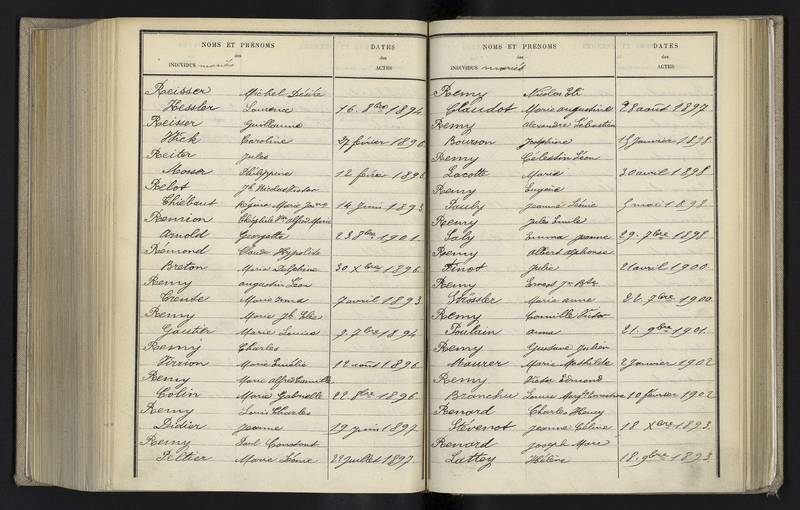 NOMS ET PRÉNOMS
des
INDIVIDUS mariés
DATES
des
ACTES
Reisser Michel Désiré
Hessler Laurence 16. 8bre 1894
Reisser Guillaume
Hick Caroline 27 février 1896
Reiter Jules
Mosser Philippine 12 févr. 1896
Relot Jh. Nicolas Victor
Thiébaut Régine Marie 14 Juin 1893
Remion Théophile Alfred Marie
Arnold Georgette 23 8bre 1901
Rémond Claude Hypolite
Breton Marie Delphine 30 Xbre 1896
Remy Augustin Léon
Crente Marie Irma 7 avril 1893
Remy Marie Jh. Elie
Gautier Marie Louise 2. 7bre 1894
Remy Charles
Virrion Marie Emélie 12 août 1896
Remy Marie Alfred Camille
Colin Marie Gabrielle 22 8bre 1896
Remy Louis Charles
Didier Jeanne 19 juin 1897
Remy Paul Constant
Peltier Marie Léonie 29 juillet 1897
NOMS ET PRÉNOMS
des
INDIVIDUS mariés
DATES
des
ACTES
Remy Nicolas
Claudot Marie Augustine 28 août 1897
Remy Alexandre Sébastien
Bourson Joséphine 15 janvier 1898
Remy Célestin Léon
Lacotte Maria 30 avril 1898
Remy Eugène
Pauly Jeanne mai 1898
Remy Jules Emile
Laly Emma Jeanne 29. 7bre 1898
Remy Albert Alphonse
Finot Julie 21 avril 1900
Remy Ernest Jn Bte
Strossler Marie Anne 22. 9bre 1900
Remy Camille Victor
Poulain Anna 21. 9bre 1901
Remy Gustave Julien
Maurer Marie Mathilde 2 Janvier 1902
Remy Victor Edmond
Branchu Louise Ernestine 10 février 1902
Renard Charles Henry
Stévenot Jeanne Céline 18 Xbre 1893
Renard Joseph Marc
Lattey Hélène 18. 9bre 1893